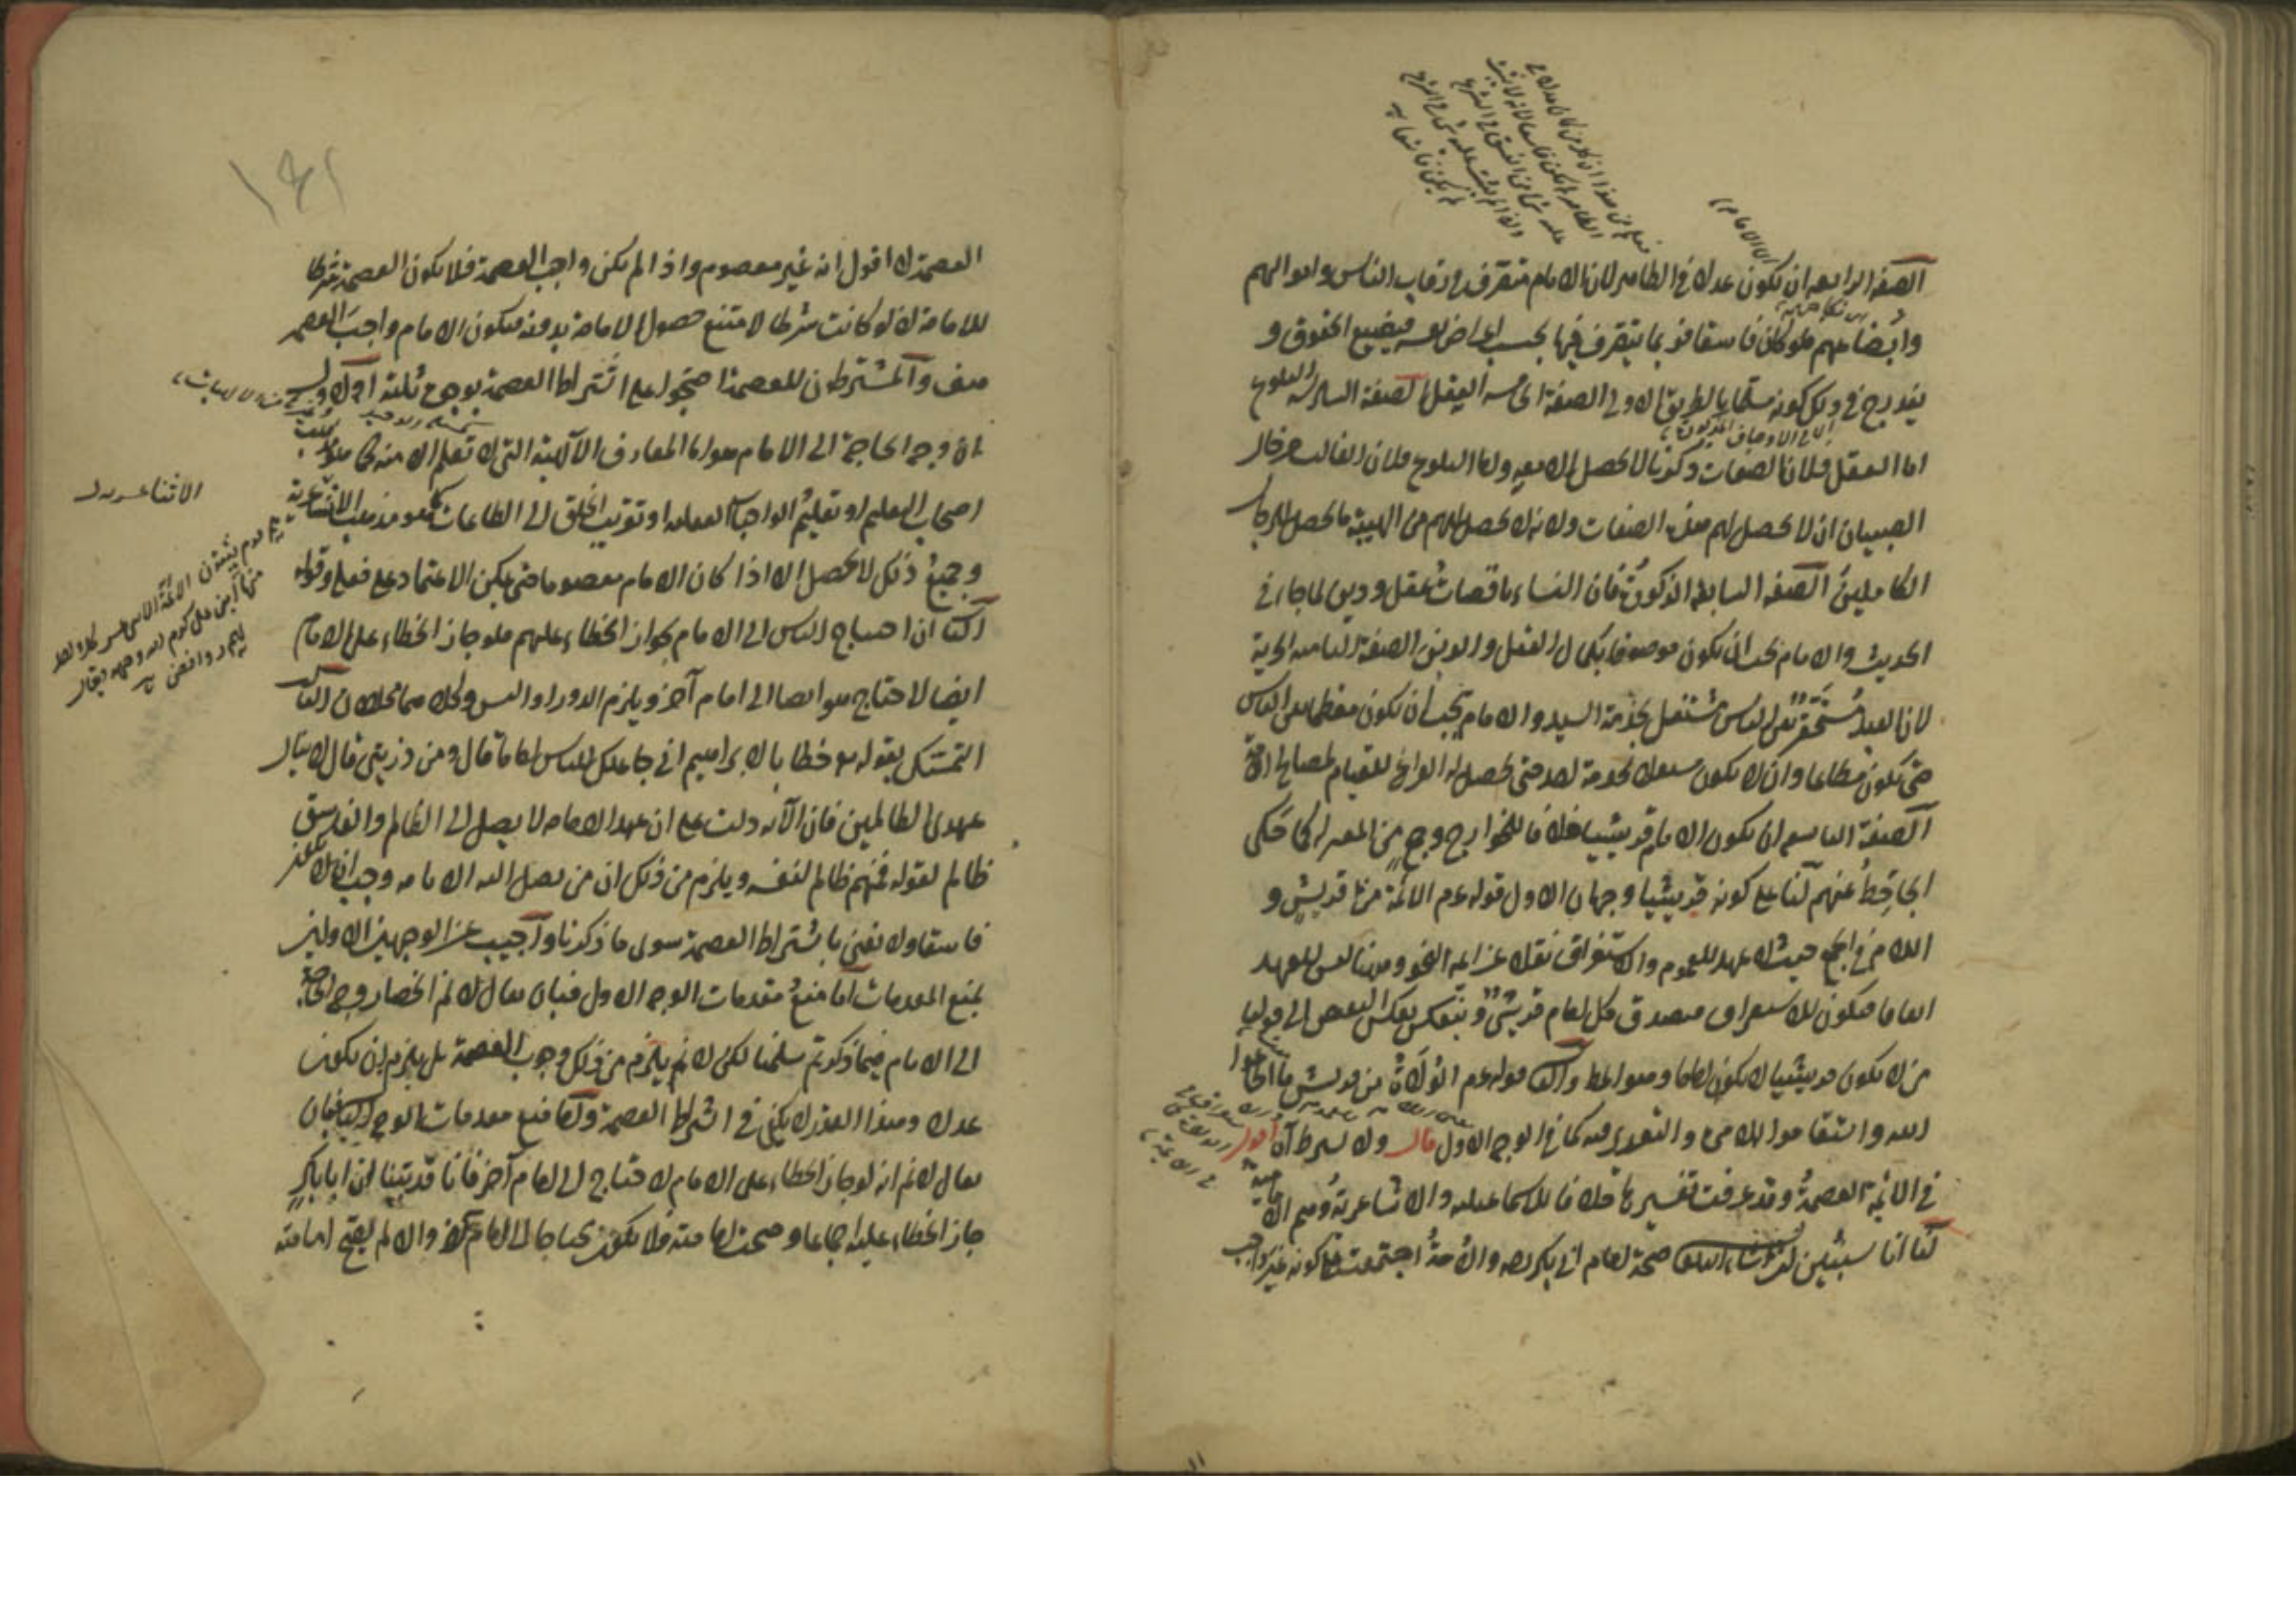 الصفة الرابعة ان يكون عدلا في الظاهر لان الامام متصرف في رقاب الناس واموالهم
وابضاعهم فلو كان فاسقا فربما يتصرف فيها بحسب اغراض نفسه فيضيع الحقوق و
يندرج في ذلك كونه مسلما بالطريق الاولى الصفة الخامسة العقل الصفة السادسة البلوغ
اما العقل فلان الصفات ذكرنا لا تحصل الا معه واما البلوغ فلان الغالب من حال
الصبيان ان لا يحصل لهم هذه الصفات ولانه لا يحصل لهم من الهيبة ما يحصل للرجال
الكاملين الصفة السابعة الذكورة فان النساء ناقصات عقل ودين لما جاء في
الحديث والامام يجب ان يكون موصوفا بكمال العقل والدين الصفة الثامنة الحرية
لان العبد مستحقر بين الناس مشتغل بخدمة السيد والامام يجب ان يكون معظما بين الناس
حتى يكون مطاعا وان لا يكون مشغولا بخدمة احد حتى يحصل له الفراغ للقيام لمصالح الامة
الصفة التاسعة ان يكون الامام قريشيا خلافا للخوارج وجمع من المعتزلة كما حكى
الجاحظ عنهم لنا على كونه قريشيا وجهان الاول قوله عم الائمة من قريش و
اللام في الجمع حيث لا عهد للعموم والاستغراق نقلا عن ائمة النحو وههنا ليس للعهد
اتفاقا فيكون للاستغراق فيصدق كل امام قريشي وينعكس بعكس النقيض الى قولنا
من لا يكون قريشيا لا يكون اماما وهو المط والثاني قوله عم الولاة من قريش ما اطاعوا
الله واستقاموا لامري والتقرير فيه كما في الوجه الاول قال ولا يشترط اه اقول
في الائمة العصمة وقد عرفت تفسيرها خلافا للاسماعيلية والاثناعشرية وهم الامامية
لنا انا سنبين ان شاء الله صحة امامة ابي بكر رضه والامة اجتمعت على كونه غير واجب
العصمة لا اقول انه غير معصوم واذا لم يكن واجب العصمة فلا يكون العصمة شرطا
للامامة اذ لو كانت شرطا لامتنع حصول الامامة بدونه فيكون الامام واجب العصمة
هف والمشترطون للعصمة احتجوا على اشتراط العصمة بوجوه ثلثة الاول
ان وجه الحاجة الى الامام هو اما المعارف الالهية التي لا تعلم الا منه كما هو مذهب
اصحاب التعليم او تعليم الواجبات العقلية او تقريب الخلق الى الطاعات كما هو مذهب الاثناعشرية
وجميع ذلك لا يحصل الا اذا كان الامام معصوما حتى يمكن الاعتماد على فعله وقوله
الثاني ان احتياج الناس الى الامام لجواز الخطاء عليهم فلو جاز الخطاء على الامام
ايضا لاحتاج هو ايضا الى امام آخر ويلزم الدور او التس وكلاهما محالان الثالث
التمسك بقوله تع خطابا لابراهيم اني جاعلك للناس اماما قال ومن ذريتي قال لا ينال
عهدي الظالمين فان الآية دلت على ان عهد الامامة لا يصل الى الظالم والفاسق
ظالم لقوله فمنهم ظالم لنفسه ويلزم من ذلك ان من يصل اليه الامامة وجب ان لا يكون
فاسقا ولا نعني باشتراط العصمة سوى ما ذكرنا واجيب عن الوجهين الاولين
بمنع المقدمات اما منع مقدمات الوجه الاول فبان يقال لا نم انحصار وجه الحاجة
الى الامام فيما ذكرتم سلمنا لكن لا نم يلزم من ذلك وجوب العصمة بل يلزم ان يكون
عدلا وهذا القدر لا يكفي في اشتراط العصمة واما منع مقدمات الوجه الثاني فبان
يقال لا نم انه لو جاز الخطاء على الامام لاحتاج الى امام آخر فانا قد بينا ان ابا بكر
جاز الخطاء عليه اجماعا وصحت امامته فلا يكون محتاجا الى امام آخر والا لم يصح امامته